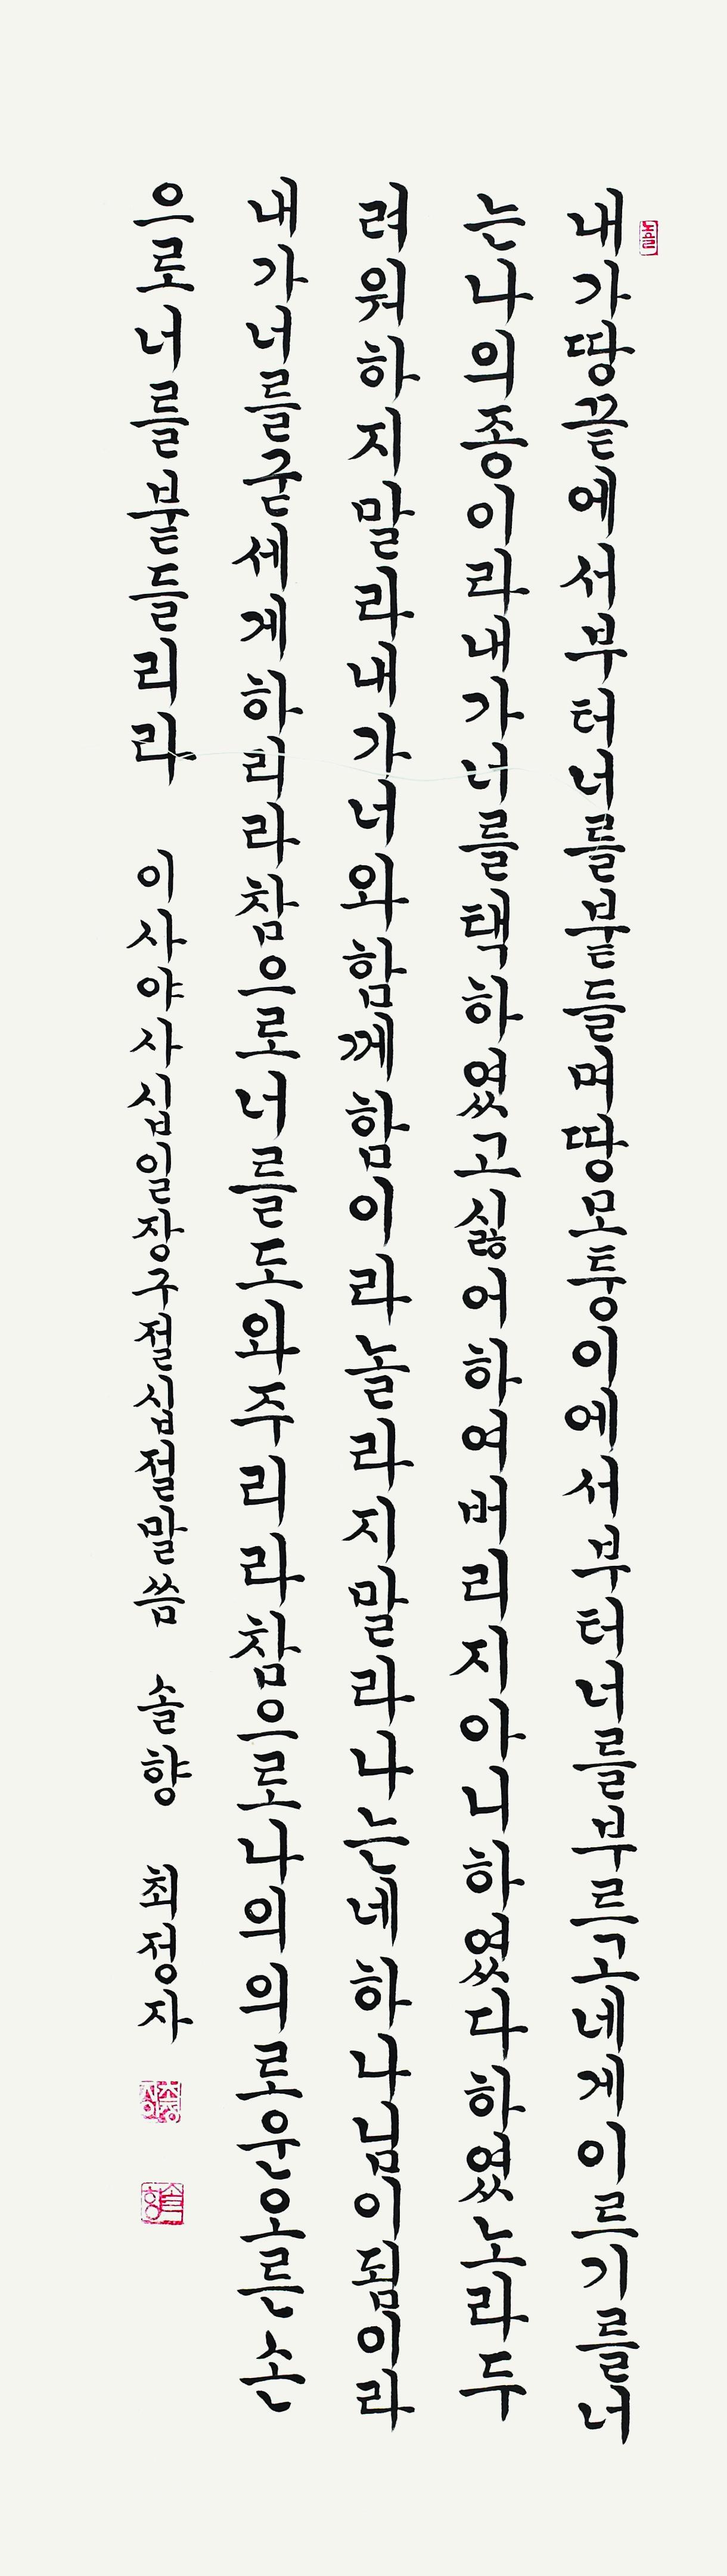 내가땅끝에서부터너를붙들며땅모퉁이에서부터너를부르고네게이르기를너
는나의종이라내가너를택하였고싫어하여버리지아니하였다하였노라두
려워하지말라내가너와함께함이라놀라지말라나는네하나님이됨이라
내가너를굳세게하리라참으로너를도와주리라참으로나의의로운오른손
으로너를붙들리라 이사야사십일장구절십절말씀 솔향 최정자